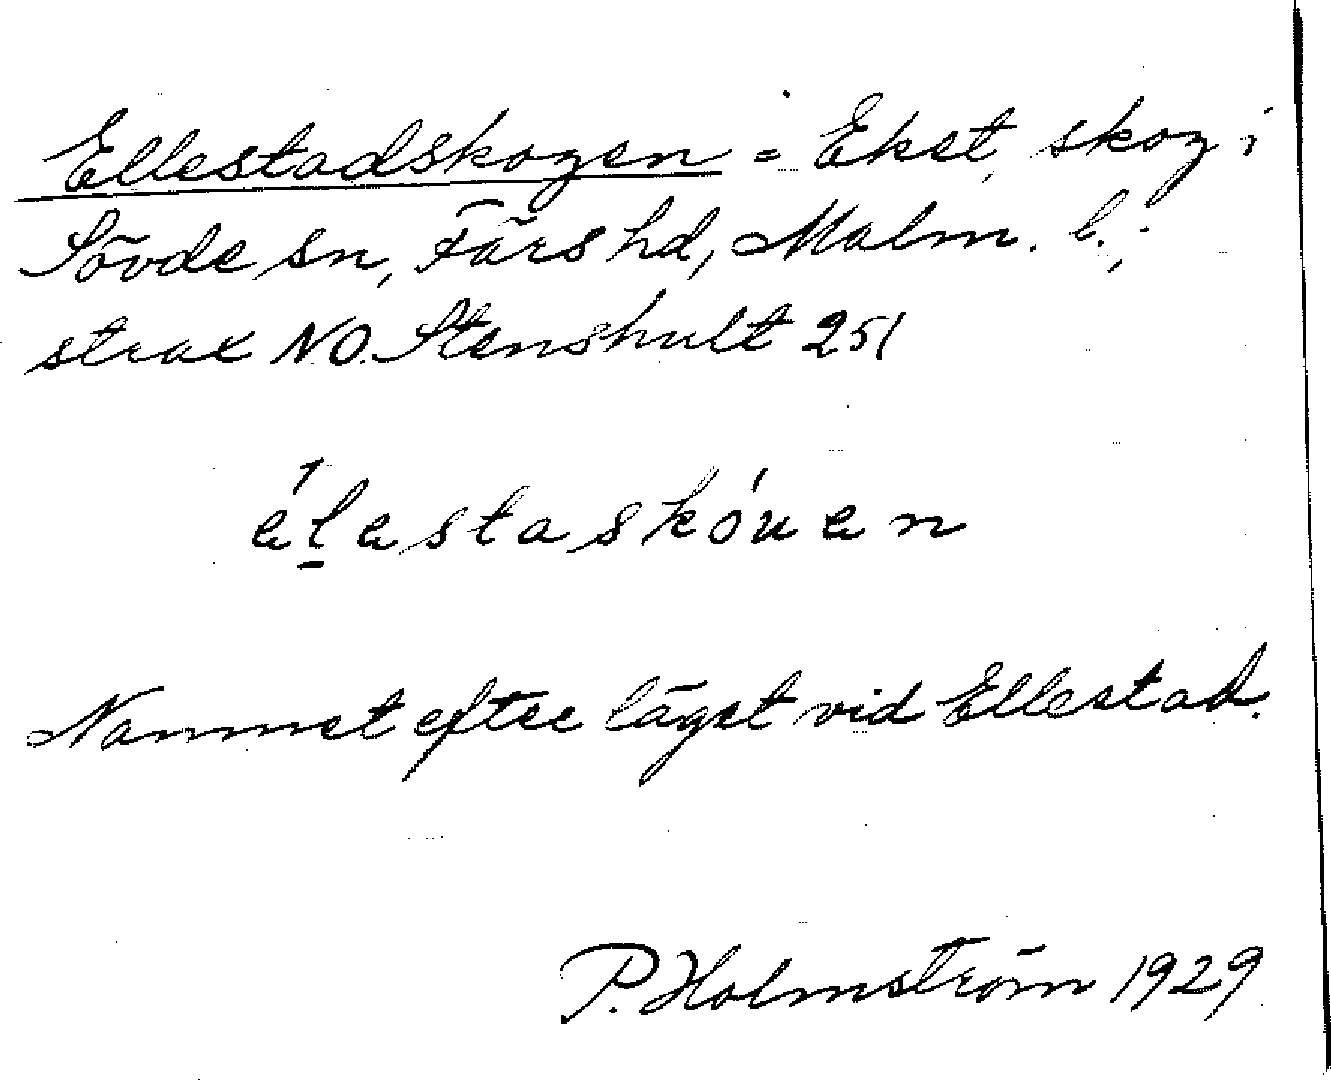 Ellestadskogen = Ekst, skog i
Sövde sn, Färs hd, Malm. l.;
strax NO. Stenshult 251
élestaskóuen
Namnet efter läget vid Ellestad.
P. Holmström 1929